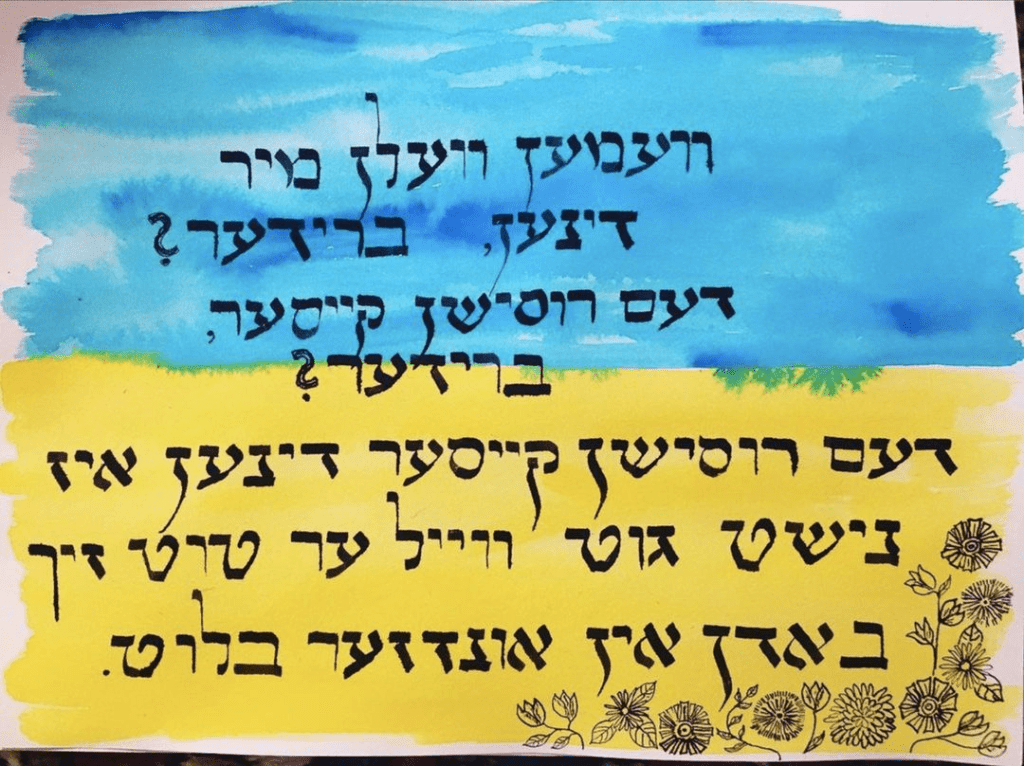 וועמען וועלן מיר
דינען, ברידער?
דעם רוסישן קייסער,
ברידער?
דעם רוסישן קייסער דינען איז
נישט גוט ווייל ער טוט זיך
באדן אין אונדזער בלוט.